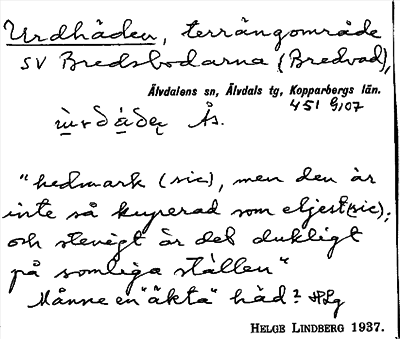 Urdhåden, terrängområde
SV Bredsbodarna (Bredvad),
Älvdalens sn, Älvdals tg, Kopparbergs län.
451 9,07
Ås.
"hedmark (sic), men den är
inte så kuperad som eljest (sic);
och stenigt är det dukligt
på somliga ställen"
Månne en "äkta" håd? HLg
HELGE LINDBERG 1937.